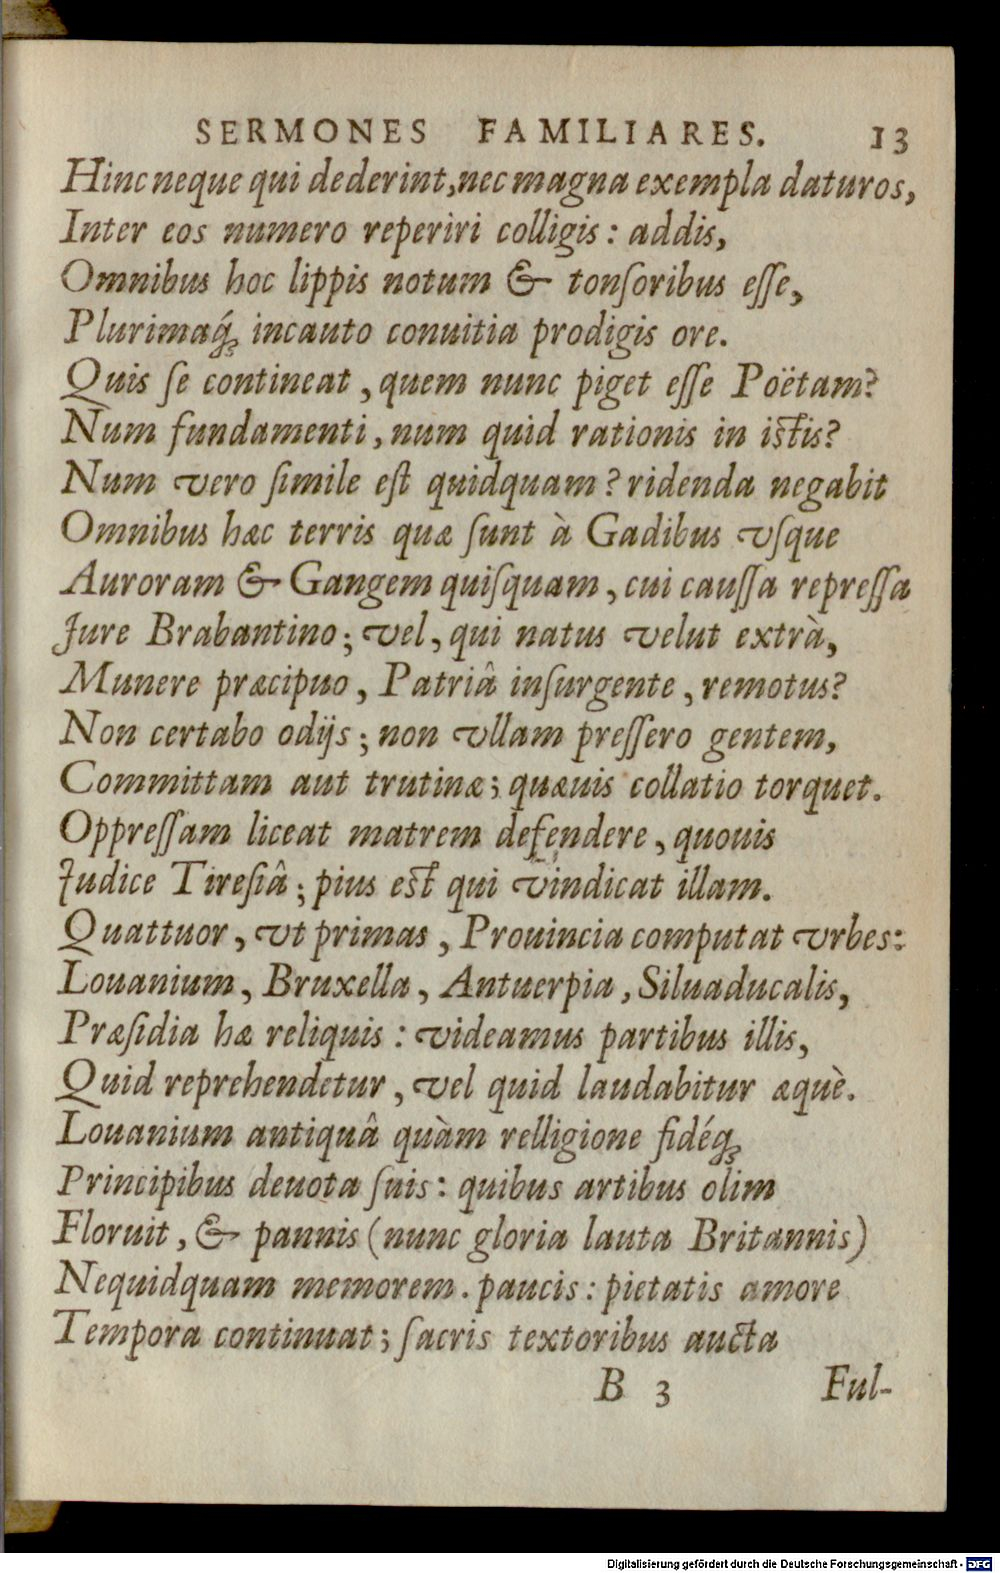 SERMONES FAMILIARES. 13
Hinc neque qui dederint, nec magna exempla daturos,
Inter eos numero reperiri colligis: addis,
Omnibus hoc lippis notum & tonſoribus eſſe,
Plurimaq́ꝫ incauto conuitia prodigis ore.
Quis ſe contineat, quem nunc piget eſſe Poëtam?
Num fundamenti, num quid rationis in iſtis?
Num vero ſimile eſt quidquam? ridenda negabit
Omnibus hæc terris quæ ſunt à Gadibus vſque
Auroram & Gangem quiſquam, cui cauſſa repreſſa
Jure Brabantino; vel, qui natus velut extrà,
Munere præcipuo, Patriâ inſurgente, remotus?
Non certabo odijs; non vllam preſſero gentem,
Committam aut trutinæ; quæuis collatio torquet.
Oppreſſam liceat matrem defendere, quouis
Judice Tireſiâ; pius eſt qui vindicat illam.
Quattuor, vt primas, Prouincia computat vrbes:
Louanium, Bruxella, Antuerpia, Siluaducalis,
Præſidia hæ reliquis: videamus partibus illis,
Quid reprehendetur, vel quid laudabitur æquè.
Louanium antiquâ quàm relligione fidéqꝫ
Principibus deuota ſuis: quibus artibus olim
Floruit, & pannis (nunc gloria lauta Britannis)
Nequidquam memorem. paucis: pietatis amore
Tempora continuat; ſacris textoribus aucta
B 3 Ful-
Digitalisierung gefördert durch die Deutsche Forschungsgemeinschaft - DFG